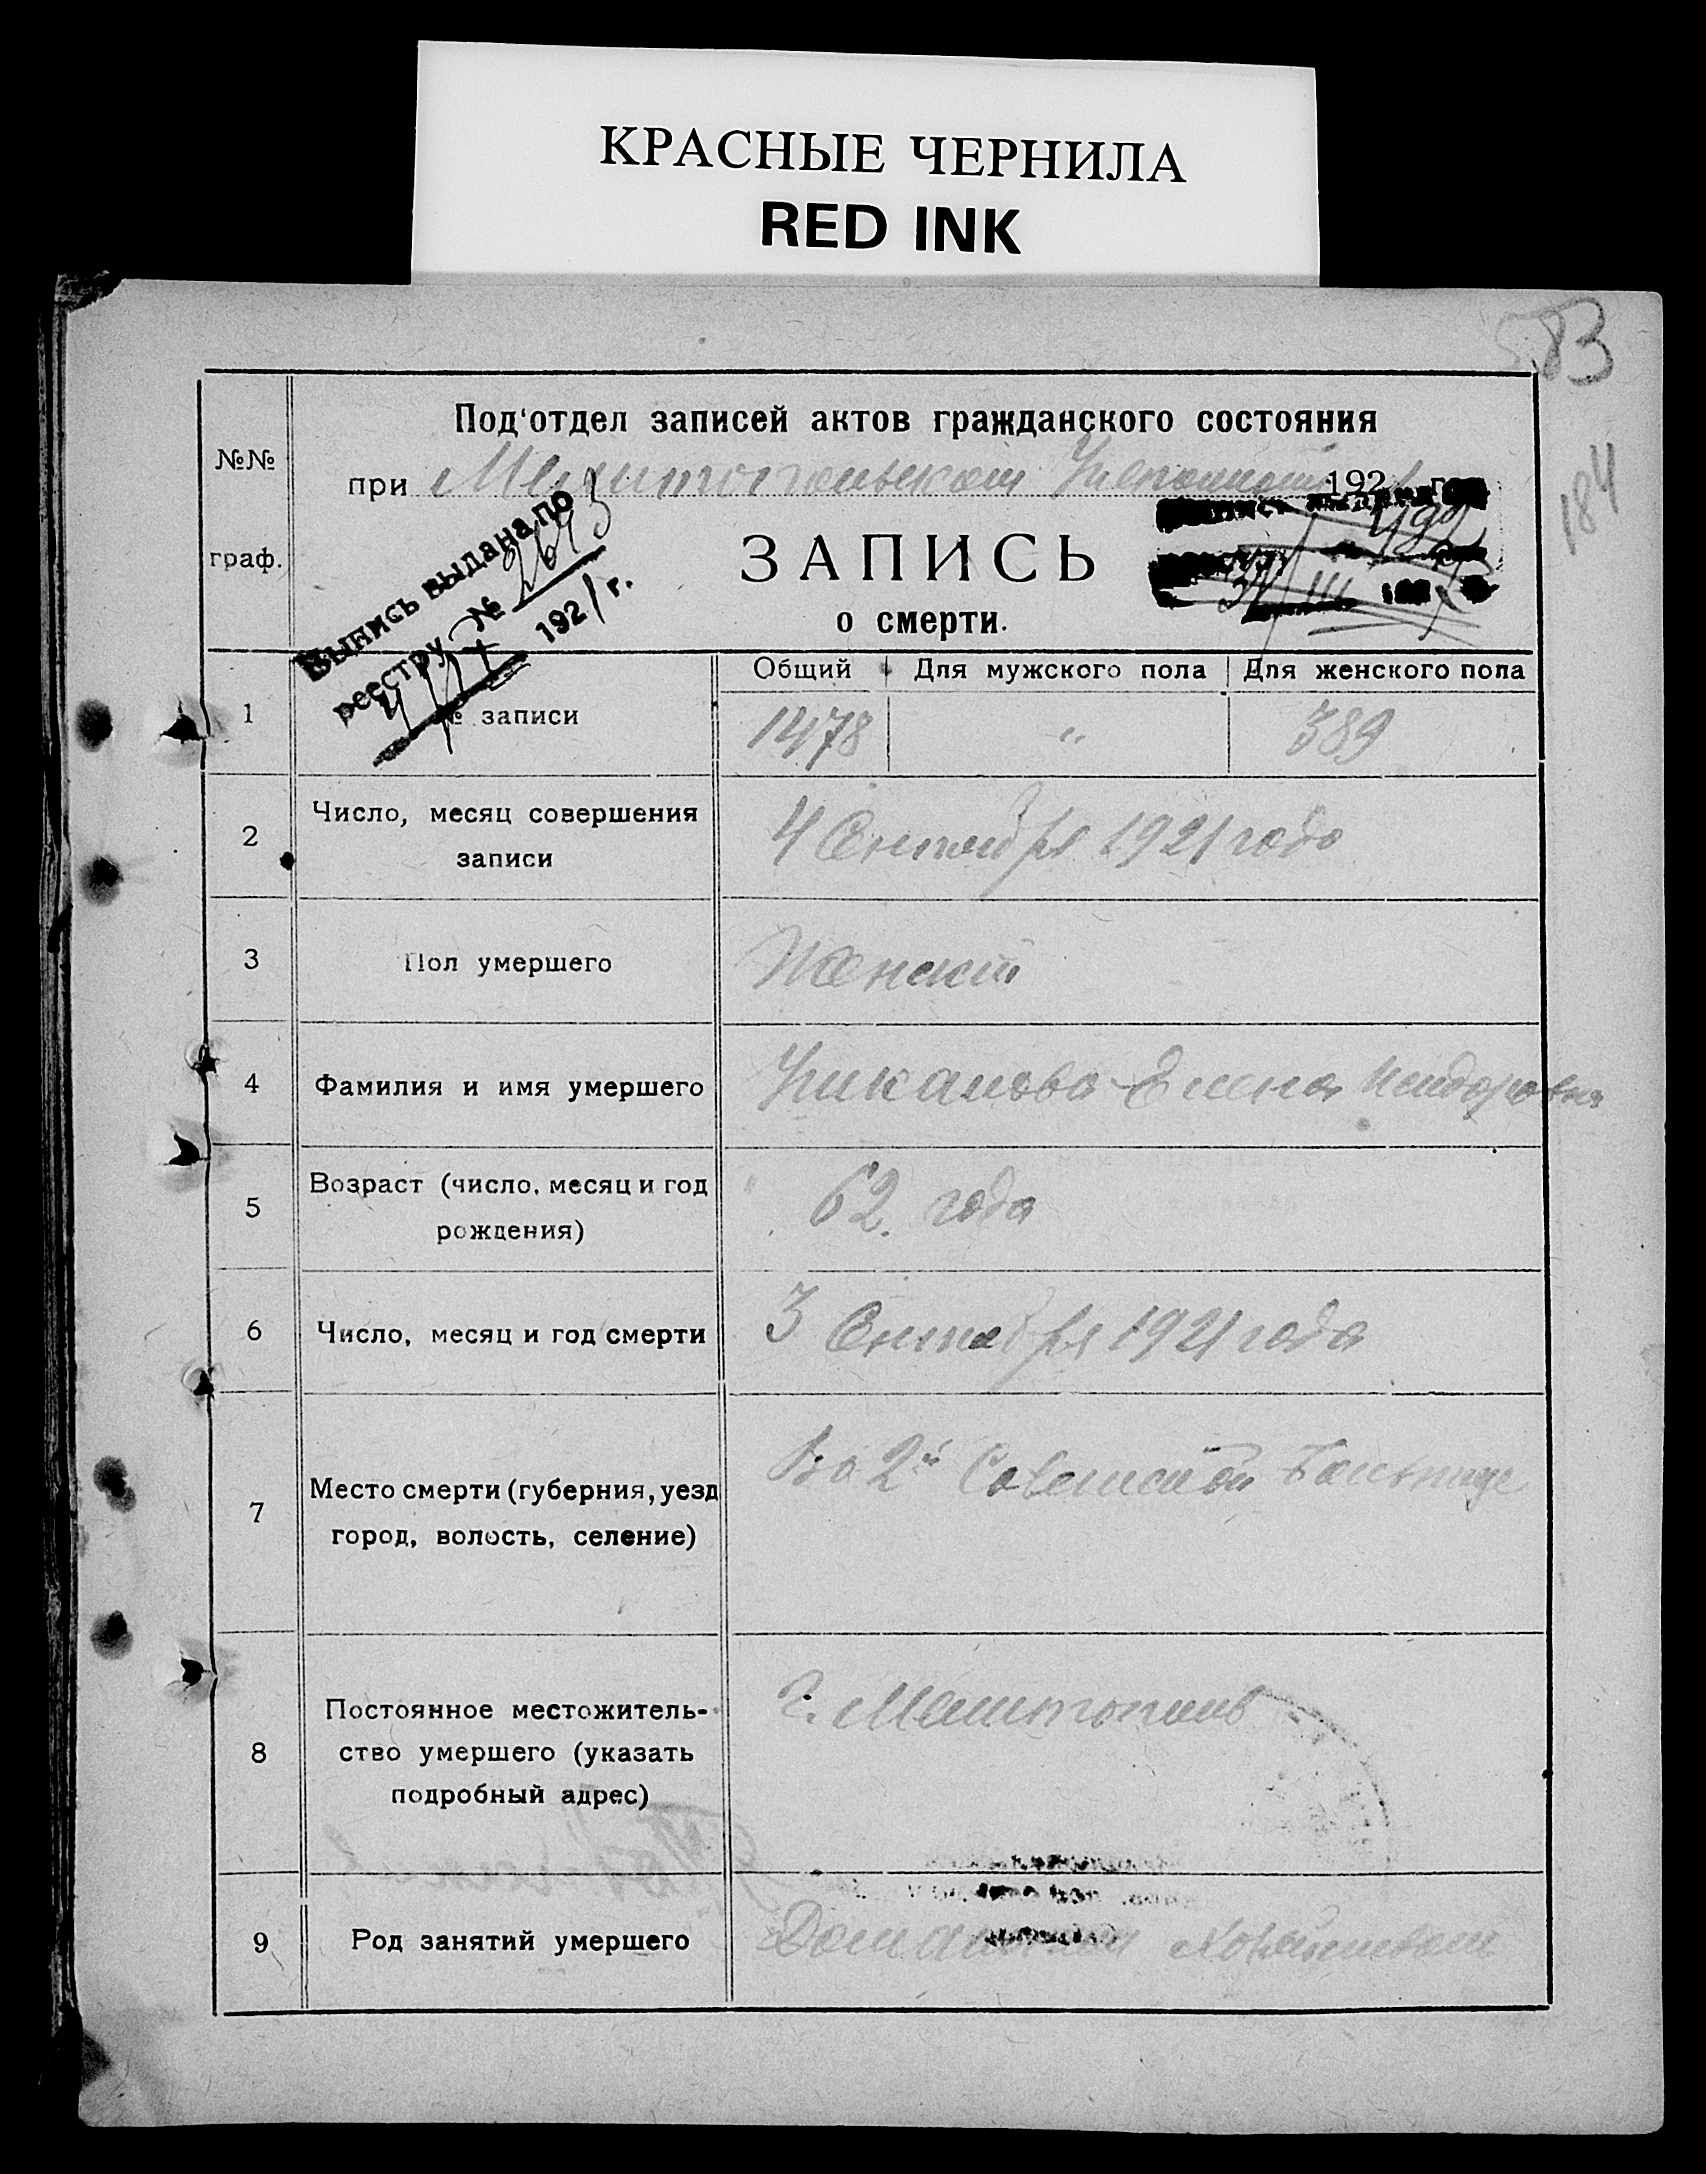 КРАСНЫЕ ЧЕРНИЛА
RED INK
583
184
№№
граф.
Под'отдел записей актов гражданского состояния
при Мелитопольском 192 г
Выпись выдана по
реестру № 2643
192 1 г.
ЗАПИСЬ
о смерти.
Общий Для мужского пола Для женского пола
1 № записи 1478 " 389
2 Число, месяц совершения
записи
4 Сентября 1921 года
3 Пол умершего Женский
4 Фамилия и имя умершего Елена Исидоровна
5 Возраст (число, месяц и год
рождения)
62 года
6 Число, месяц и год смерти 3 Сентября 1921 года
7 Место смерти (губерния, уезд
город, волость, селение)
Во 2й Советской Больнице
8 Постоянное местожитель-
ство умершего (указать
подробный адрес)
г. Мелитополь
9 Род занятий умершего Домашним Хозяйством